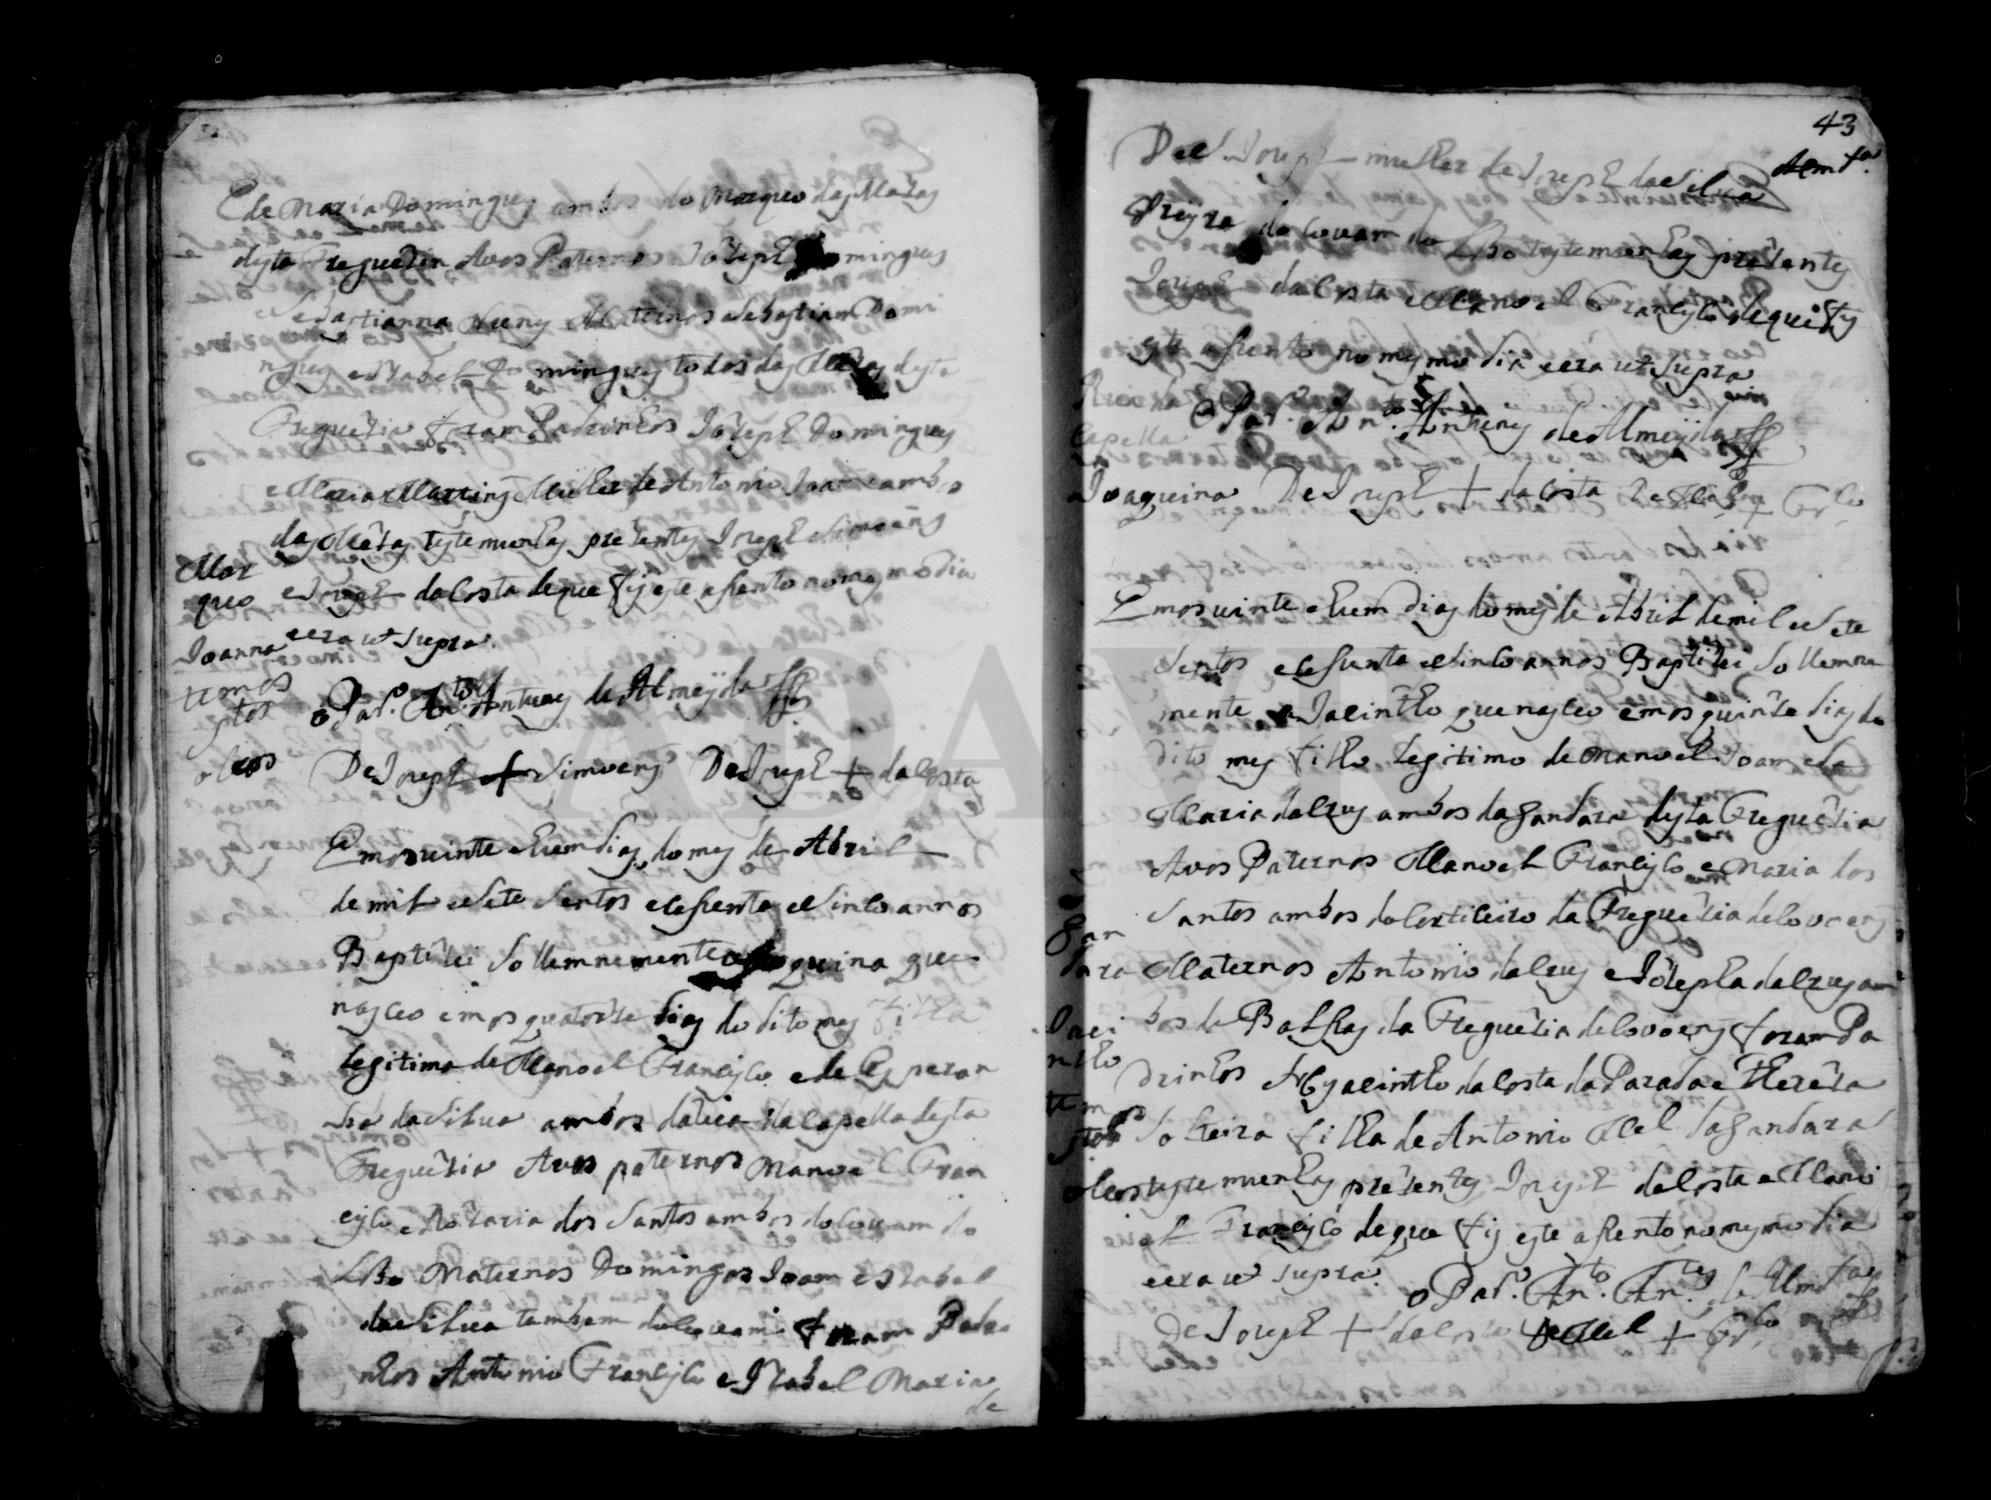 E de Maria Domingues ambos do Marqueo das Mezas
desta Freguezia Avos Paternos Jozeph Domingues
e Sebastianna Nunes Maternos Sebastiam Domi
ngues e Izabel Domingues todos das Mezas desta
Freguezia foram Padrinhos Jozeph Domingues
e Maria Martins Mulher de Antonio Joam ambos
das Mezas testemunhas prezentes Jozeph Simoens
e Jozeph da Costa de que fis este asento no mesmo dia
e era ut supra.
o Par.º An.to Antunes de Almeyda
De Jozeph + Simoens De Jozeph + da Costa
Mar
queo
Joanna
tem os
stos
oleos
Em os vinte e hum dias do mes de Abril
de mil e Sete Sentos e cesenta e Sinco annos
Baptizei Sollemnemente a Joaquina que
nasceo em os quatorze dias do dito mes filha
legitima de Manoel Francisco e de Esperan
sa da Silva ambos da Capella desta
Freguezia Avos paternos Manoel Fran
cisco e Rozaria dos Santos ambos do Covam do
Lobo Maternos Domingos Joam e Izabel
da Silva tambem do Covam foram Padri
nhos Antonio Francisco e Izabel Maria
de
43
De S. Joseph mulher de Joseph da Silva
do Covam do Lobo testemunhas prezentes
Joseph da Costa e Manoel Francisco de que fis
este asento no mesmo dia e era ut supra
o Par.º An.to Antunes de Almeyda
Capella
Joaquina De Joseph + da Costa De M.el + Fr.co
Em os vinte e hum dias do mes de Abril de mil e Sete
Sentos e cesenta e Sinco annos Baptizei Sollemne
mente a Jacintho que nasceo em os quinze dias do
dito mes filho legitimo de Manoel Joam e de
Maria da Crus ambos da Gandara desta Freguezia
Avos Paternos Manoel Francisco e Maria dos
Santos ambos do Corticeiro da Freguezia de Covoens
Maternos Antonio da Crus e Jozepha da Crus am
bos de Balsas da Freguezia de Covoens foram Pa
drinhos Hyacintho da Costa da Parada e Thereza
Solteira filha de Antonio M.el da Gandara
testemunhas prezentes Joseph da Costa e Mano
el Francisco de que fis este asento no mesmo dia
e era ut supra. o Par.º An.to An.tes de Alm.da
De Joseph + da Costa De M.el + Fr.co
Gan
dara
Jaci
ntho
tem os
stos
oleos